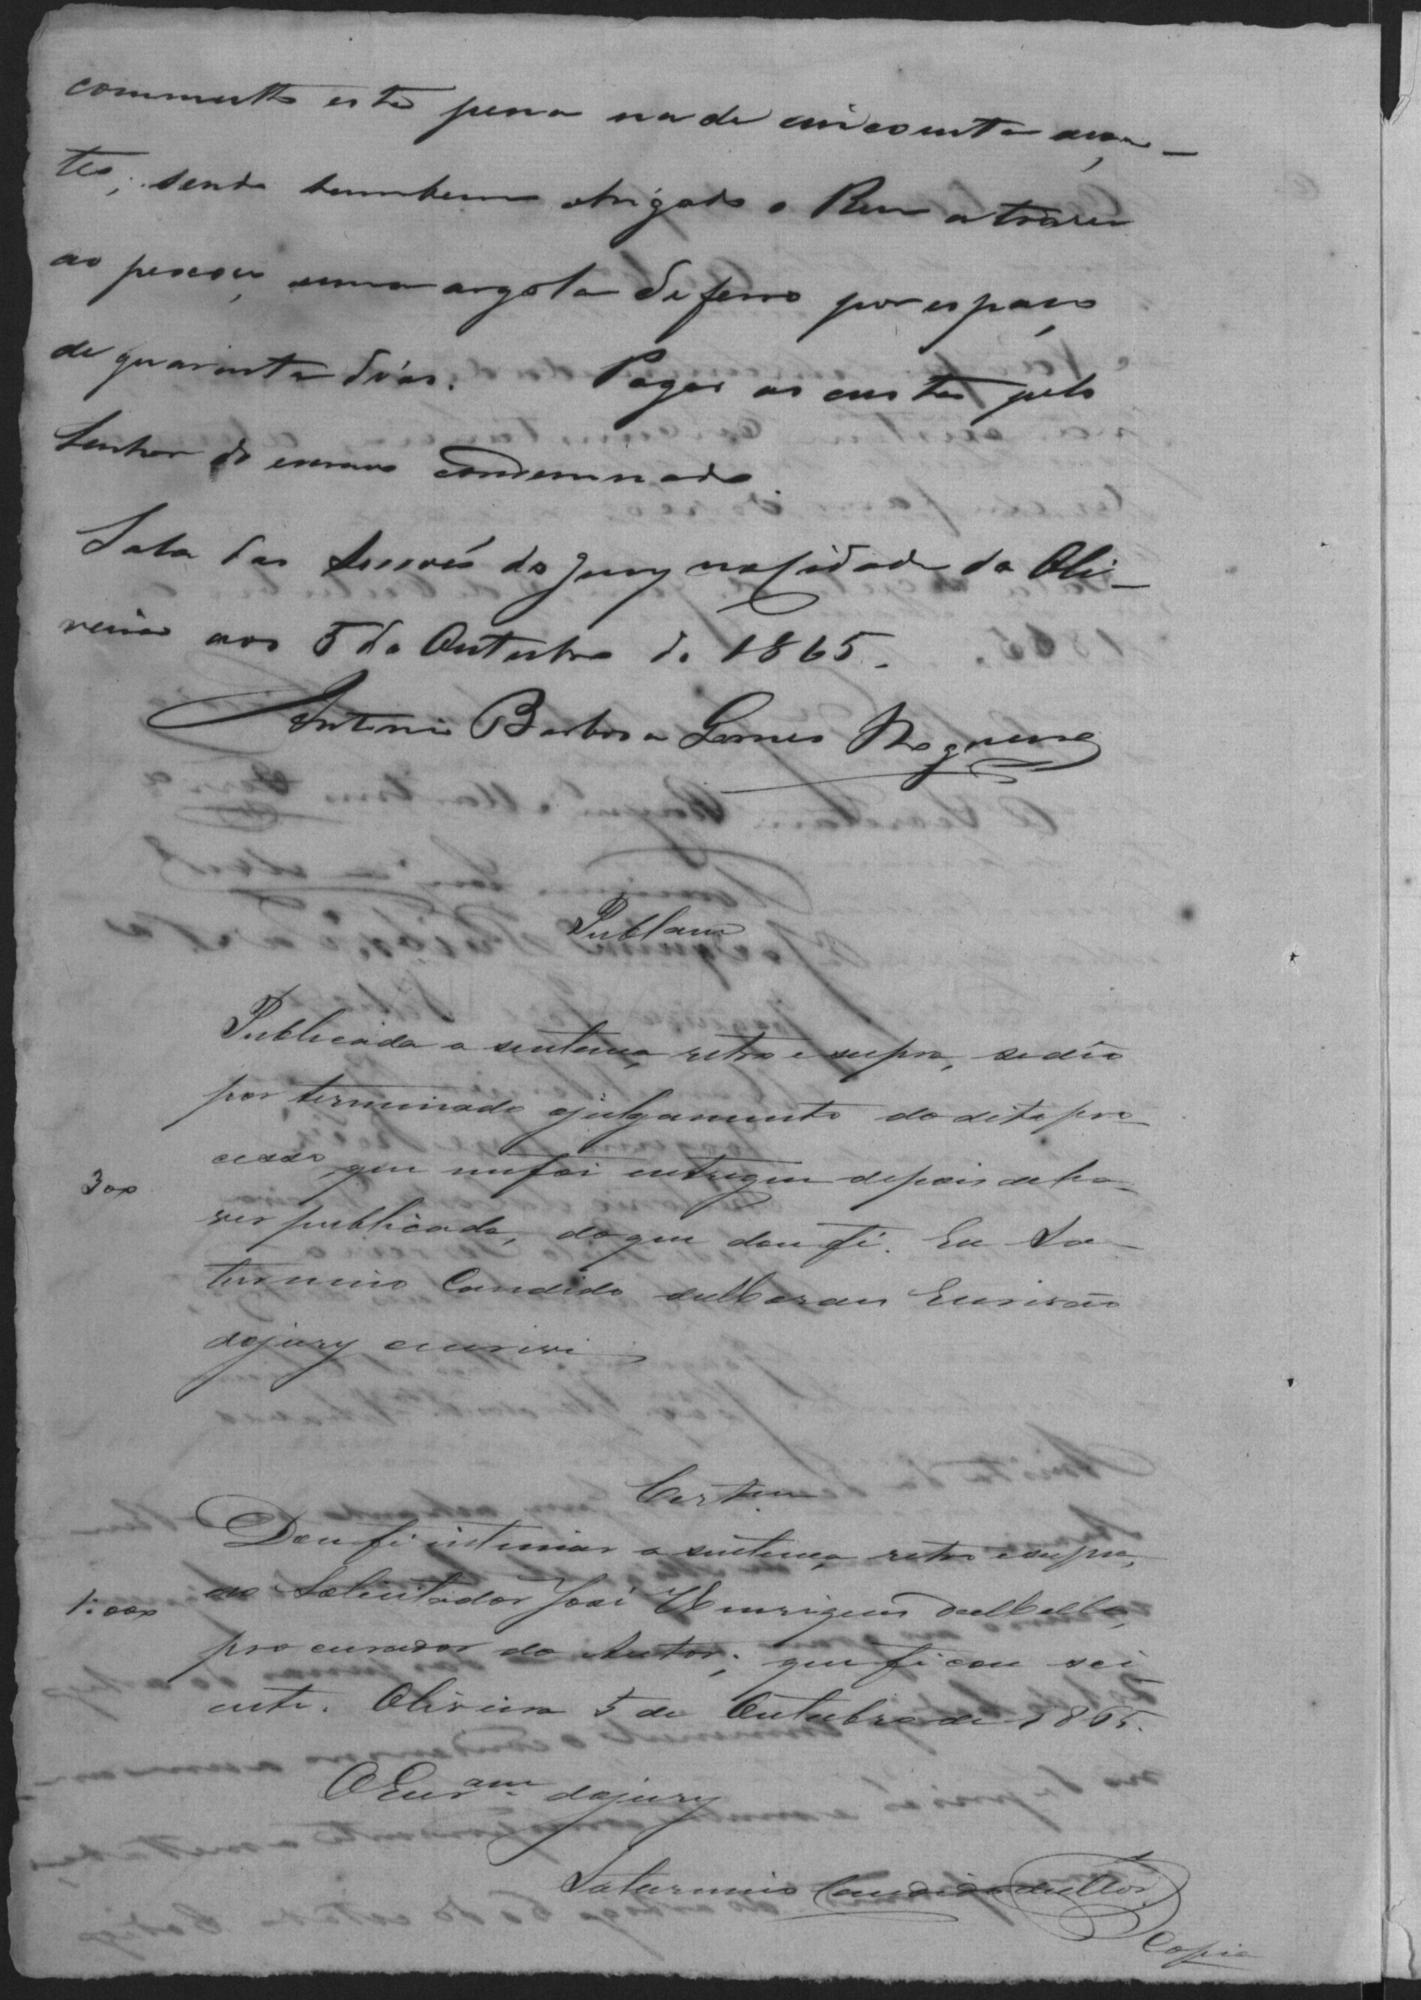 commutto esta pena na de cincoenta açoi-
tes, sendo tambem obrigado o Reu a trazer
ao pescoço uma argola de ferro por espaço
de quarenta dias. Pague as custas pelo
Senhor do escravo condemnado.
Sala das Sessões do Jury na Cidade da Oli-
veira aos 5 de Outubro de 1865.
Antonio Barbosa Gomes Nogueira
Publam
Publicada a sentença, retro e supra, se deo
por terminado o julgamento do dito pro
cesso, que me foi entregue depois de ha-
ver publicado, do que dou fé. Eu Sa-
turnino Candido Escrivão
do jury escrivi
300
Certam
Dou fé intimar a sentença retro e supra,
ao Solicitador José Henriques
procurador do Autor; que ficou sci-
ente. Oliveira 5 de Outubro de 1865.
1:000
O Escr.am do jury
Saturnino Candido
Copia